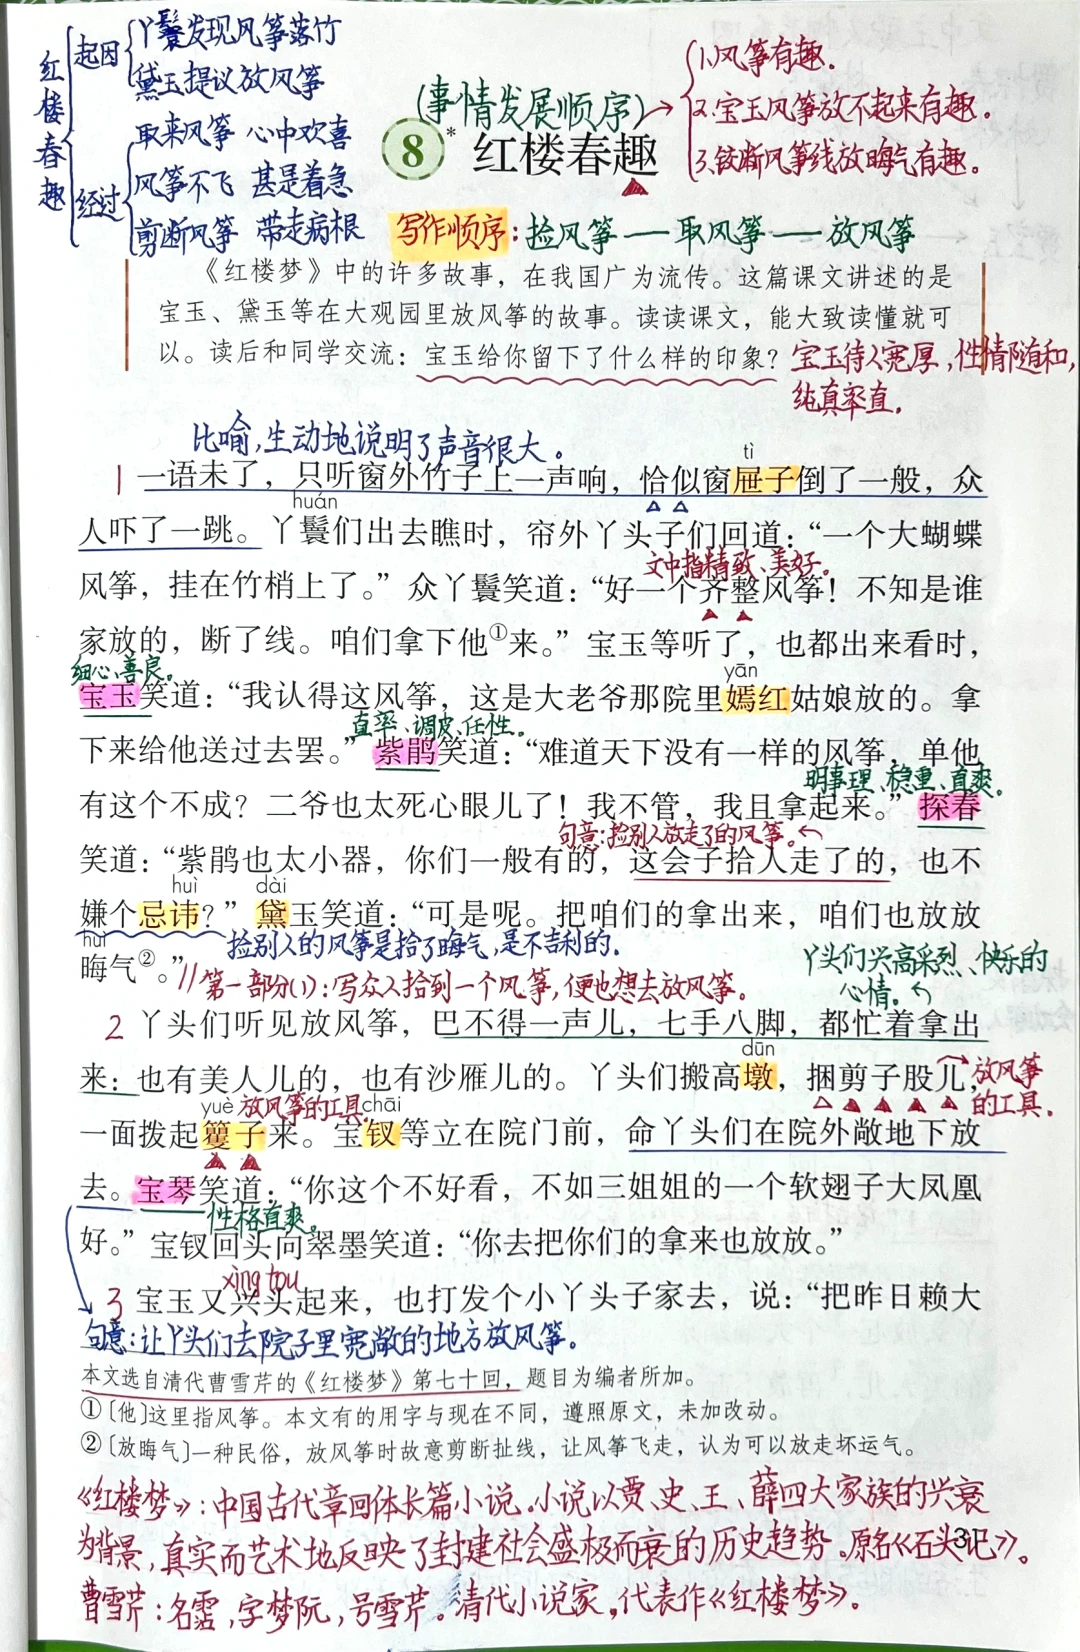 红楼春趣
起因
丫鬟发现风筝落竹
黛玉提议放风筝
经过
取来风筝 心中欢喜
风筝不飞 甚是着急
剪断风筝 带走病根
(事情发展顺序)→
1.风筝有趣。
2.宝玉风筝放不起来有趣。
3.铰断风筝线放晦气有趣。
8 * 红楼春趣
写作顺序：捡风筝—取风筝—放风筝
《红楼梦》中的许多故事，在我国广为流传。这篇课文讲述的是
宝玉、黛玉等在大观园里放风筝的故事。读读课文，能大致读懂就可
以。读后和同学交流：宝玉给你留下了什么样的印象？
宝玉待人宽厚，性情随和，
纯真率直。
比喻，生动地说明了声音很大。
tì
1 一语未了，只听窗外竹子上一声响，恰似窗屉子倒了一般，众
huán
人吓了一跳。丫鬟们出去瞧时，帘外丫头子们回道：“一个大蝴蝶
文中指精致、美好。
风筝，挂在竹梢上了。”众丫鬟笑道：“好一个齐整风筝！不知是谁
家放的，断了线。咱们拿下他①来。”宝玉等听了，也都出来看时，
细心、善良。
yān
宝玉笑道：“我认得这风筝，这是大老爷那院里嫣红姑娘放的。拿
直率、调皮、任性。
下来给他送过去罢。”紫鹃笑道：“难道天下没有一样的风筝，单他
明事理、稳重、直爽。
有这个不成？二爷也太死心眼儿了！我不管，我且拿起来。”探春
句意：捡别人放走了的风筝。
笑道：“紫鹃也太小器，你们一般有的，这会子拾人走了的，也不
huì dài
嫌个忌讳？”黛玉笑道：“可是呢。把咱们的拿出来，咱们也放放
huì
捡别人的风筝是拾了晦气，是不吉利的。
晦气②。”
//第一部分(1)：写众人拾到一个风筝，便也想去放风筝。
丫头们兴高采烈、快乐的
心情。
2 丫头们听见放风筝，巴不得一声儿，七手八脚，都忙着拿出
dūn
来：也有美人儿的，也有沙雁儿的。丫头们搬高墩，捆剪子股儿，
放风筝
的工具。
yuè 放风筝的工具 chāi
一面拨起籰子来。宝钗等立在院门前，命丫头们在院外敞地下放
去。宝琴笑道：“你这个不好看，不如三姐姐的一个软翅子大凤凰
性格直爽。
好。”宝钗回头向翠墨笑道：“你去把你们的拿来也放放。”
xìng tou
3 宝玉又兴头起来，也打发个小丫头子家去，说：“把昨日赖大
句意：让丫头们去院子里宽敞的地方放风筝。
本文选自清代曹雪芹的《红楼梦》第七十回，题目为编者所加。
①〔他〕这里指风筝。本文有的用字与现在不同，遵照原文，未加改动。
②〔放晦气〕一种民俗，放风筝时故意剪断扯线，让风筝飞走，认为可以放走坏运气。
《红楼梦》：中国古代章回体长篇小说。小说以贾、史、王、薛四大家族的兴衰
为背景，真实而艺术地反映了封建社会盛极而衰的历史趋势。原名《石头记》。
曹雪芹：名霑，字梦阮，号雪芹。清代小说家。代表作《红楼梦》。